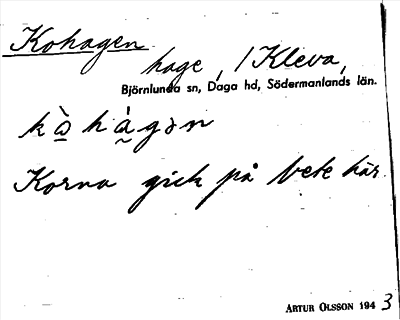 Kohagen
hage, / Kleva,
Björnlunda sn, Daga hd, Södermanlands län.
kò̠há̰gən
Korna gick på bete här
ARTUR OLSSON 1943